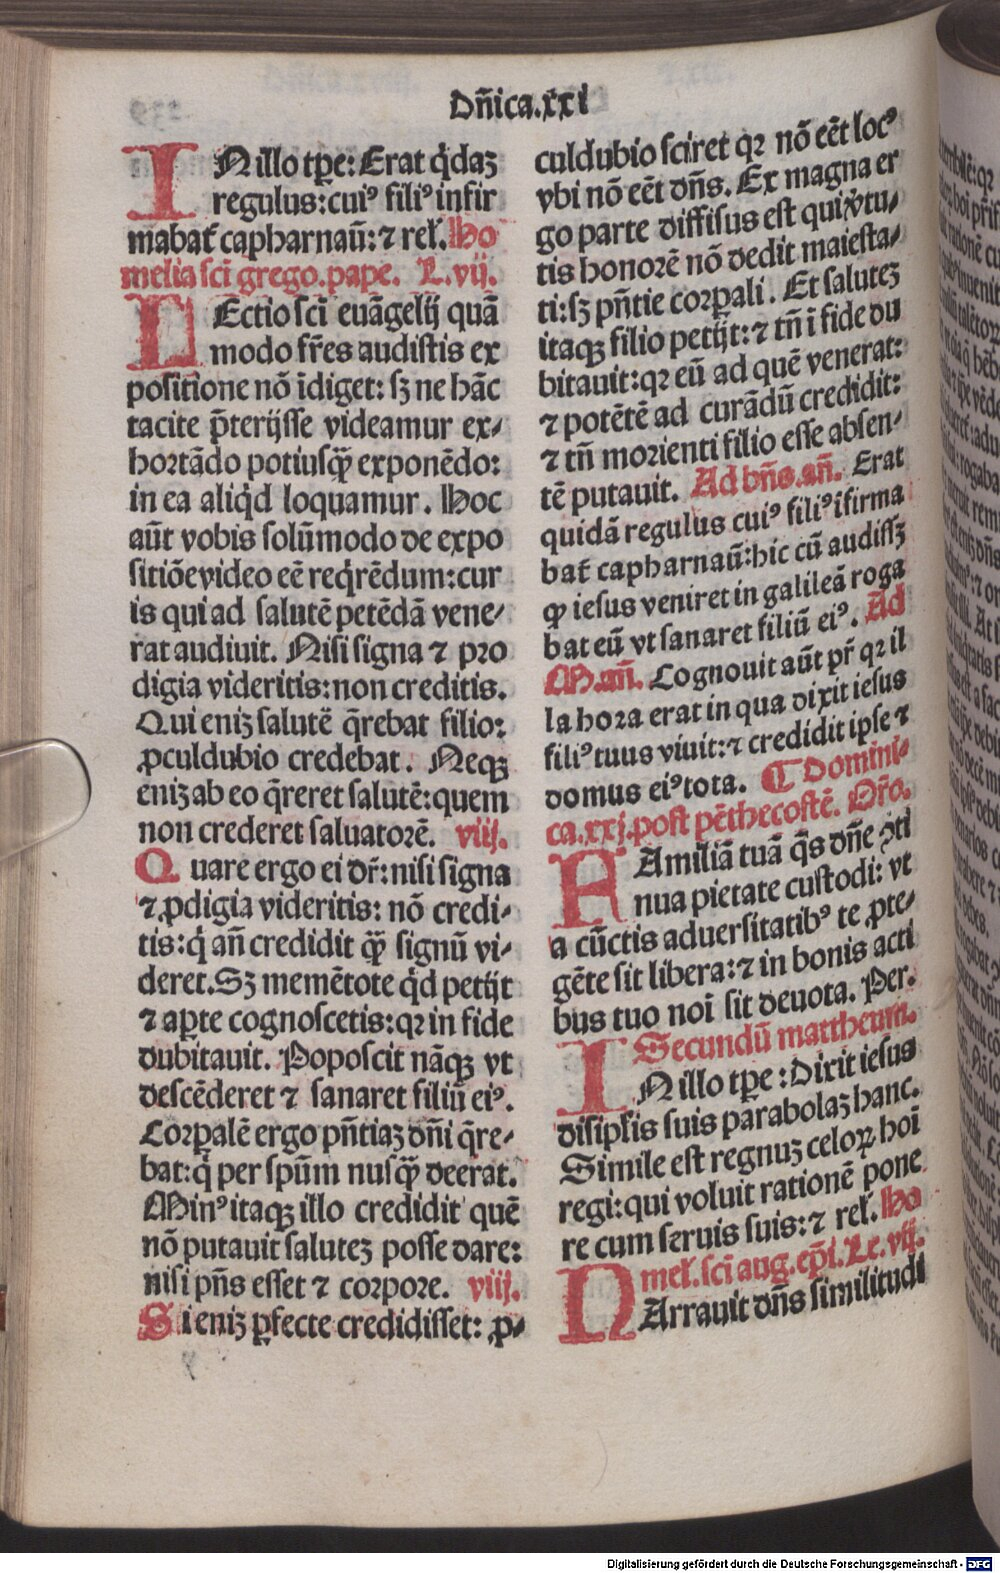 Dn̄ica.xxi
IN illo tp̄e: Erat q̇daꝫ
regulus: cuiꝰ filiꝰ infir
mabat̄ capharnaū: ⁊ rel̄. Ho
melia sc̄i grego. pape. L. vij.
LEctio sc̄i euāgelij quā
modo fr̄es audistis ex
positione nō īdiget: sꝫ ne hāc
tacite p̄terijsse videamur ex⸗
hortādo potiusqꝫ̄ exponēdo:
in ea aliq̇d loquamur. Hoc
aūt vobis solūmodo de expo
sitiōe video eē req̇rēdum: cur
is qui ad salutē petēdā vene⸗
rat audiuit. Nisi signa ⁊ pro
digia videritis: non creditis.
Qui eniꝫ salutē q̄rebat filio:
ꝓculdubio credebat. Neqꝫ
eniꝫ ab eo q̄reret salutē: quem
non crederet saluatorē. viij.
Quare ergo ei dr̄: nisi signa
⁊ ꝓdigia videritis: nō credi⸗
tis: q̇ an̄ credidit qꝫ̄ signū vi⸗
deret. Sꝫ memētote q̇d petijt
⁊ aꝑte cognoscetis: qꝛ in fide
dubitauit. Poposcit nāqꝫ vt
descēderet ⁊ sanaret filiū eiꝰ.
Corꝑalē ergo pn̄tiaꝫ dn̄i q̄re⸗
bat: q̇ per spūm nusqꝫ̄ deerat.
Minꝰ itaqꝫ illo credidit quē
nō putauit saluteꝫ posse dare:
nisi pn̄s esset ⁊ corpore. viij.
Si eniꝫ ꝑfecte credidisset: ꝓ⸗
culdubio sciret qꝛ nō eēt locꝰ
vbi nō eēt dn̄s. Ex magna er
go parte diffisus est qui v̇tu⸗
tis honorē nō dedit maiesta⸗
ti: sꝫ pn̄tie corꝑali. Et saluteꝫ
itaqꝫ filio petijt: ⁊ tn̄ ī fide du
bitauit: qꝛ eū ad quē venerat:
⁊ potētē ad curādū credidit:
⁊ tn̄ morienti filio esse absen⸗
tē putauit. Ad bn̄s. an̄. Erat
quidā regulus cuiꝰ filiꝰ īfirma
bat̄ capharnaū: hic cū audissꝫ
ꝙ iesus veniret in galileā roga
bat eū vt sanaret filiū eiꝰ. Ad
M. an̄. Cognouit aūt pr̄ qꝛ il
la hora erat in qua dixit iesus
filiꝰ tuus viuit: ⁊ credidit ipse ⁊
domus eiꝰ tota. ¶ Domini⸗
ca. xxj. post pēthecostē. Or̄o.
FAmiliā tuā q̄s dn̄e ꝯti
nua pietate custodi: vt
a cūctis aduersitatibꝰ te ꝓte⸗
gēte sit libera: ⁊ in bonis acti
bus tuo noī sit deuota. Per.
Secundū mattheum.
IN illo tp̄e: Dixit iesus
disipl̄is suis parabolaꝫ hanc.
Simile est regnuꝫ celoꝝ hoī
regi: qui voluit rationē pone
re cum seruis suis: ⁊ rel̄. Ho
mel̄. sc̄i aug. ep̄i. Le. vij.
NArrauit dn̄s similitudi